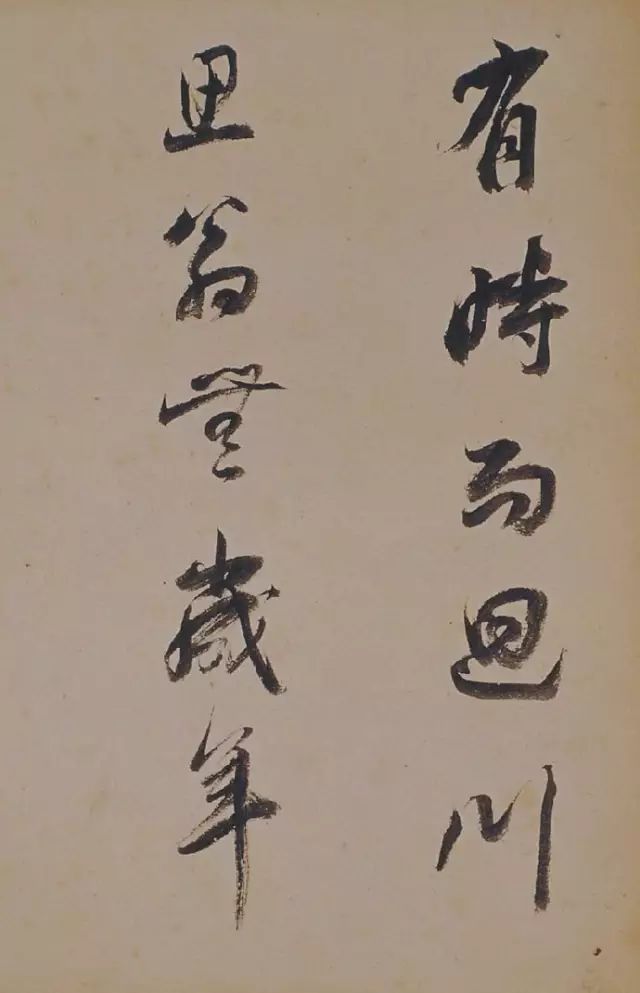 有時而迴川
思翁無歲年